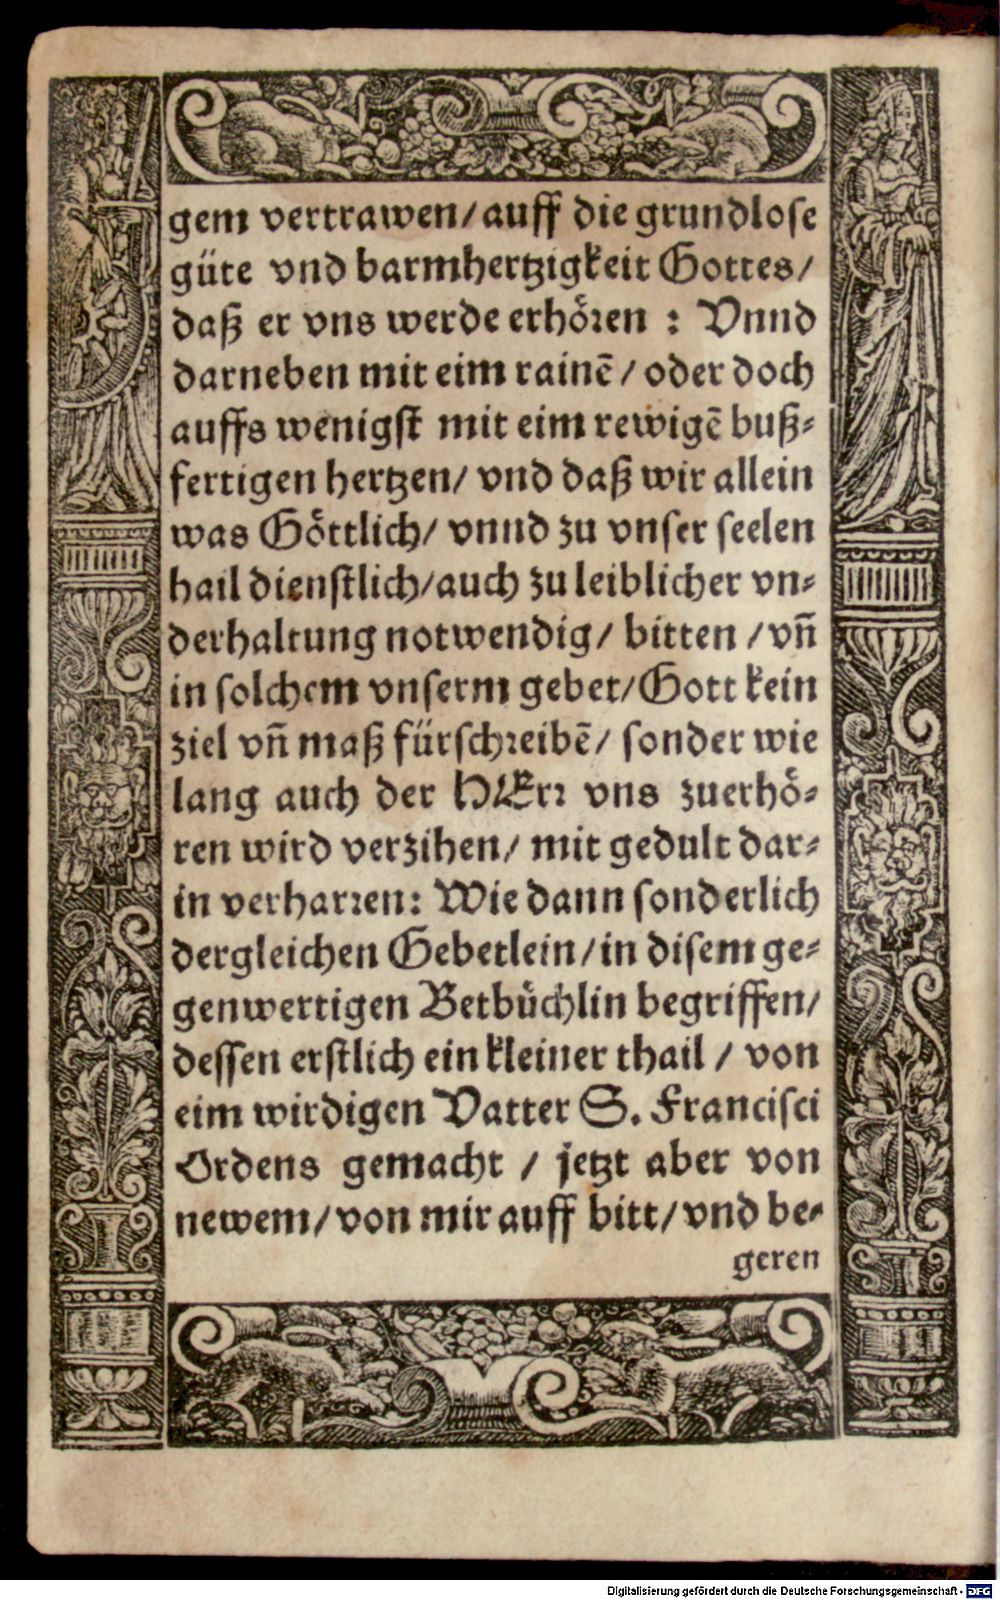 gem vertrawen/ auff die grundlose
güte vnd barmhertzigkeit Gottes/
daß er vns werde erhören : Vnnd
darneben mit eim rainē / oder doch
auffs wenigst mit eim rewigē buß⸗
fertigen hertzen/ vnd daß wir allein
was Göttlich/ vnnd zu vnser seelen
hail dienstlich/ auch zu leiblicher vn⸗
derhaltung notwendig/ bitten / vñ
in solchem vnserm gebet/ Gott kein
ziel vñ maß fürschreibē/ sonder wie
lang auch der HErr vns zuerhö⸗
ren wird verzihen/ mit gedult dar⸗
in verharren: Wie dann sonderlich
dergleichen Gebetlein/ in disem ge⸗
genwertigen Betbüchlin begriffen/
dessen erstlich ein kleiner thail / von
eim wirdigen Vatter S. Francisci
Ordens gemacht / jetzt aber von
newem/ von mir auff bitt/ vnd be⸗
geren
Digitalisierung gefördert durch die Deutsche Forschungsgemeinschaft - DFG